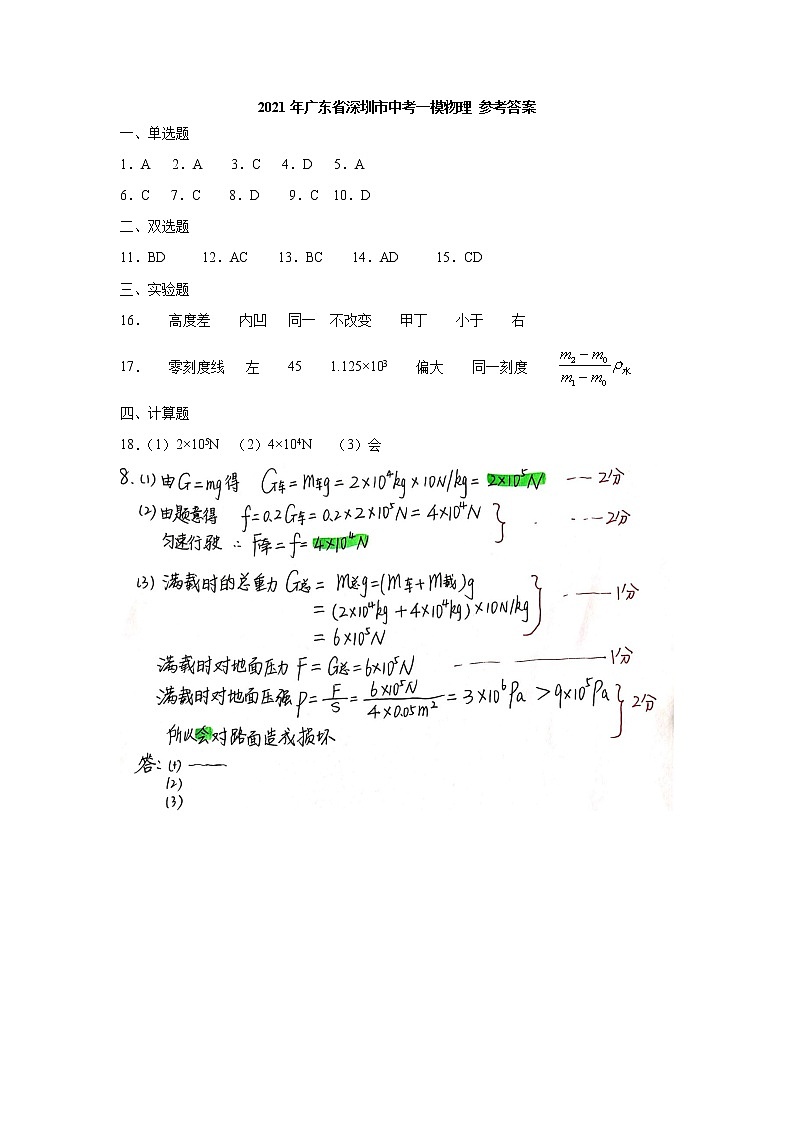 2021年广东省深圳市中考一模物理 参考答案
一、单选题
1.A 2.A 3.C 4.D 5.A
6.C 7.C 8.D 9.C 10.D
二、双选题
11.BD 12.AC 13.BC 14.AD 15.CD
三、实验题
16. 高度差 内凹 同一 不改变 甲丁 小于 右
17. 零刻度线 左 45 1.125×10³ 偏大 同一刻度 (m₂－m₀)/(m₁－m₀)ρ水
四、计算题
18.(1)2×10⁵N (2)4×10⁴N (3)会
8.(1)由G=mg得 G车=m车g=2×10⁴kg×10N/kg=2×10⁵N ---2分
(2)由题意得 f=0.2G车=0.2×2×10⁵N=4×10⁴N ---2分
匀速行驶 ∴ F牵=f=4×10⁴N
(3)满载时的总重力G总=m总g=(m车+m载)g
=(2×10⁴kg+4×10⁴kg)×10N/kg ---1分
=6×10⁵N
满载时对地面压力F=G总=6×10⁵N ---1分
满载时对地面压强p=F/S=6×10⁵N/4×0.05m²=3×10⁶Pa>9×10⁵Pa 2分
所以会对路面造成损坏
答:(1)——
(2)
(3)